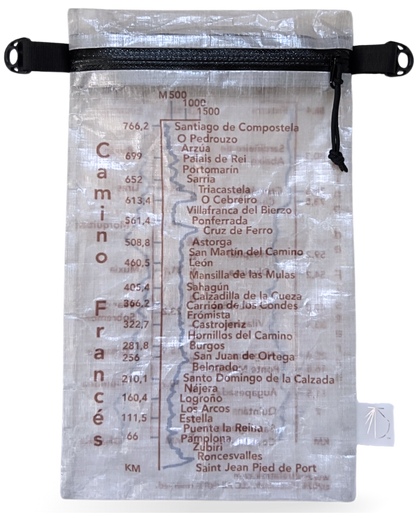 M500
1000
1500
766,2 Santiago de Compostela
O Pedrouzo
Arzúa
699 Palais de Rei
Portomarín
652 Sarria
Triacastela
613,4 O Cebreiro
Villafranca del Bierzo
561,4 Ponferrada
Cruz de Ferro
508,8 Astorga
San Martín del Camino
460,5 León
Mansilla de las Mulas
405,4 Sahagún
Calzadilla de la Cueza
366,2 Carrión de los Condes
Frómista
322,7 Castrojeriz
Hornillos del Camino
281,8 Burgos
256 San Juan de Ortega
Belorado
210,1 Santo Domingo de la Calzada
Nájera
160,4 Logroño
Los Arcos
111,5 Estella
Puente la Reina
66 Pamplona
Zubiri
Roncesvalles
KM Saint Jean Pied de Port
Camino Francés